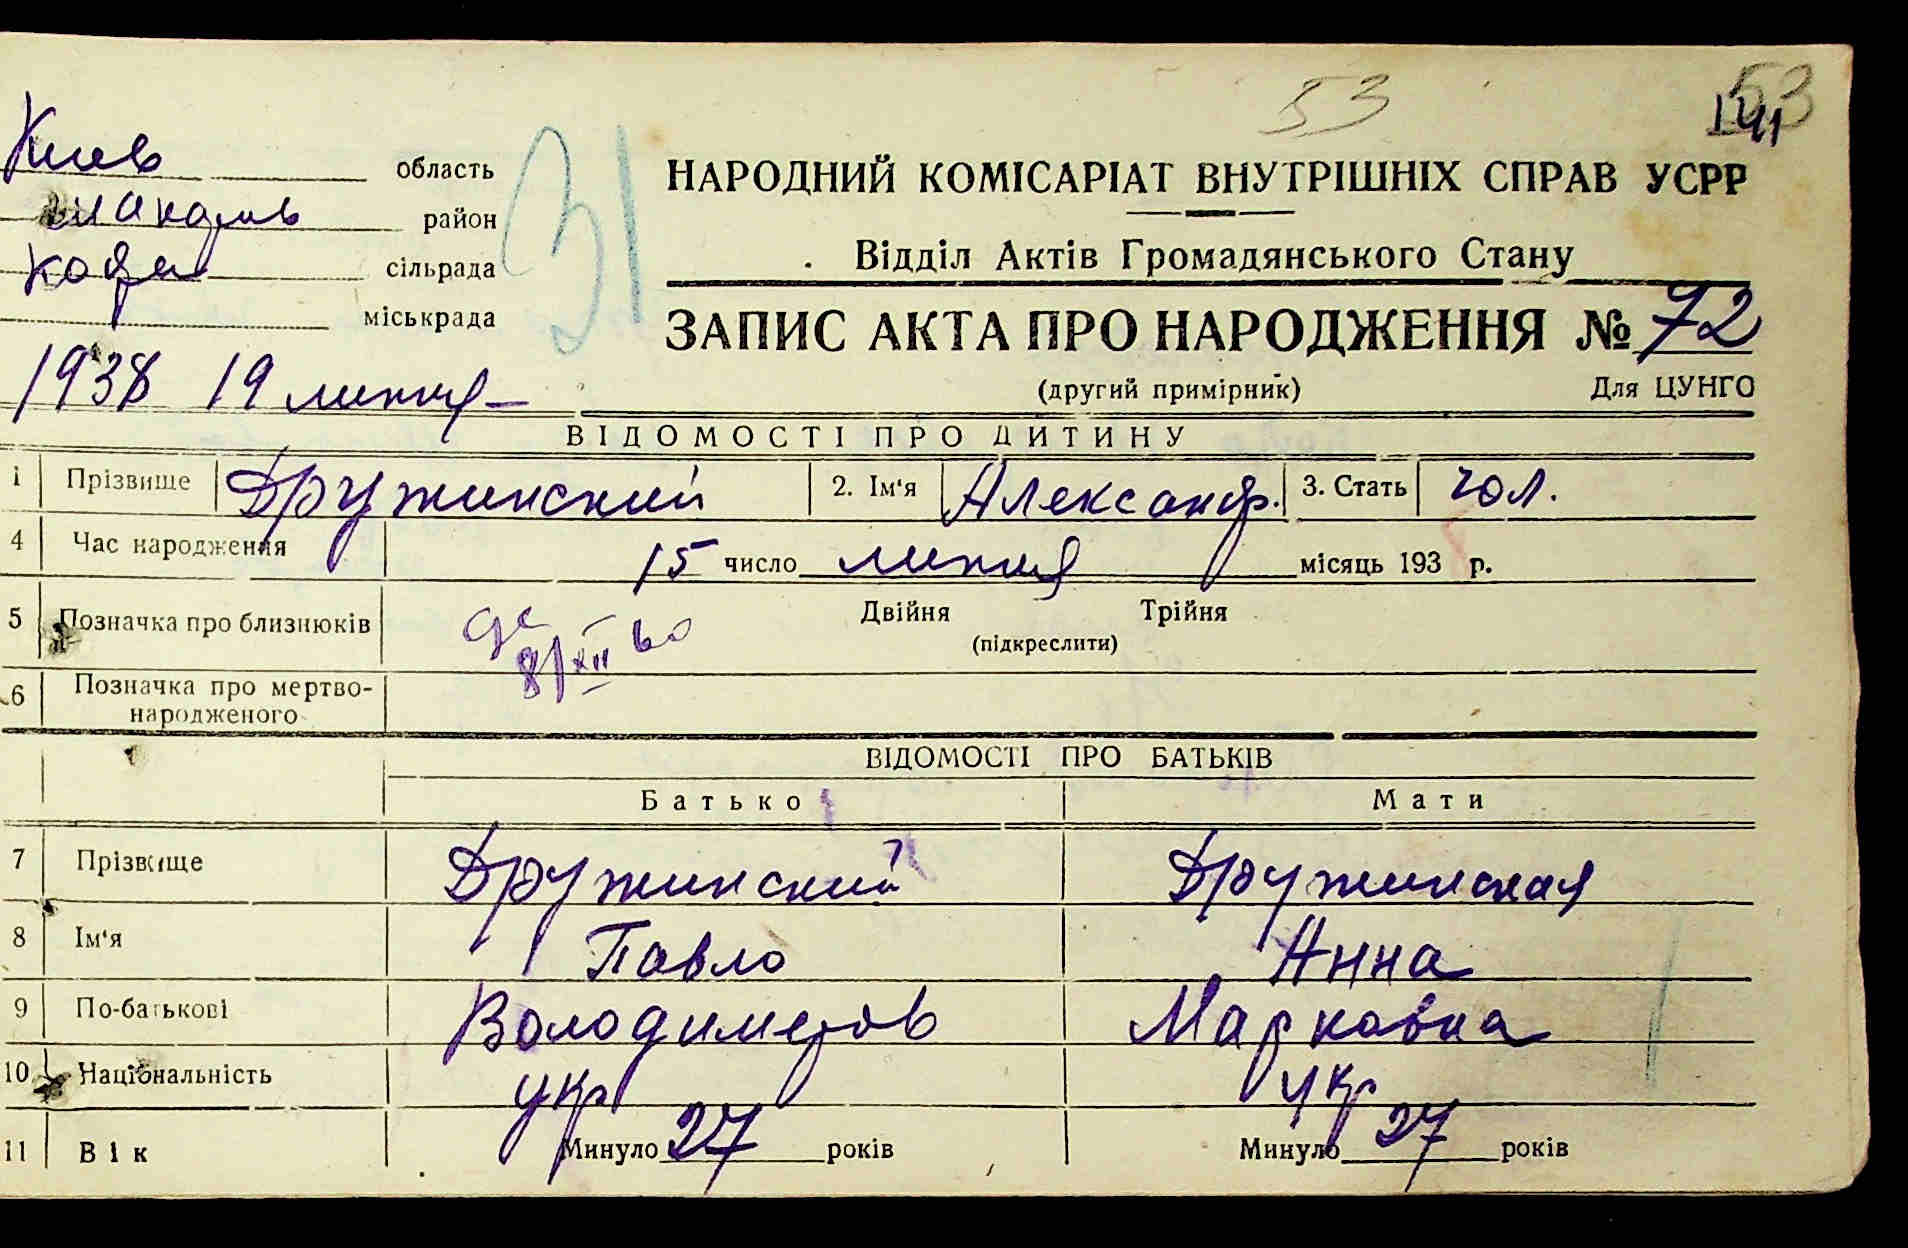 53
53
141
Киев область
Макарів район
Кодра сільрада
міськрада
31
НАРОДНИЙ КОМІСАРІАТ ВНУТРІШНІХ СПРАВ УСРР
Відділ Актів Громадянського Стану
ЗАПИС АКТА ПРО НАРОДЖЕННЯ № 72
(другий примірник) Для ЦУНГО
1938 19 липня
ВІДОМОСТІ ПРО ДИТИНУ
1 Прізвище Дружинский 2. Ім'я Александр. 3. Стать чол.
4 Час народження 15 число липня місяць 193 р.
5 Позначка про близнюків Двійня Трійня
(підкреслити)
8/XII 60
6 Позначка про мертво-
народженого
ВІДОМОСТІ ПРО БАТЬКІВ
Батько Мати
7 Прізвище Дружинский Дружинская
8 Ім'я Павло Анна
9 По-батькові Володимеров Марковна
10 Національність укр укр
11 Вік Минуло 27 років Минуло 27 років